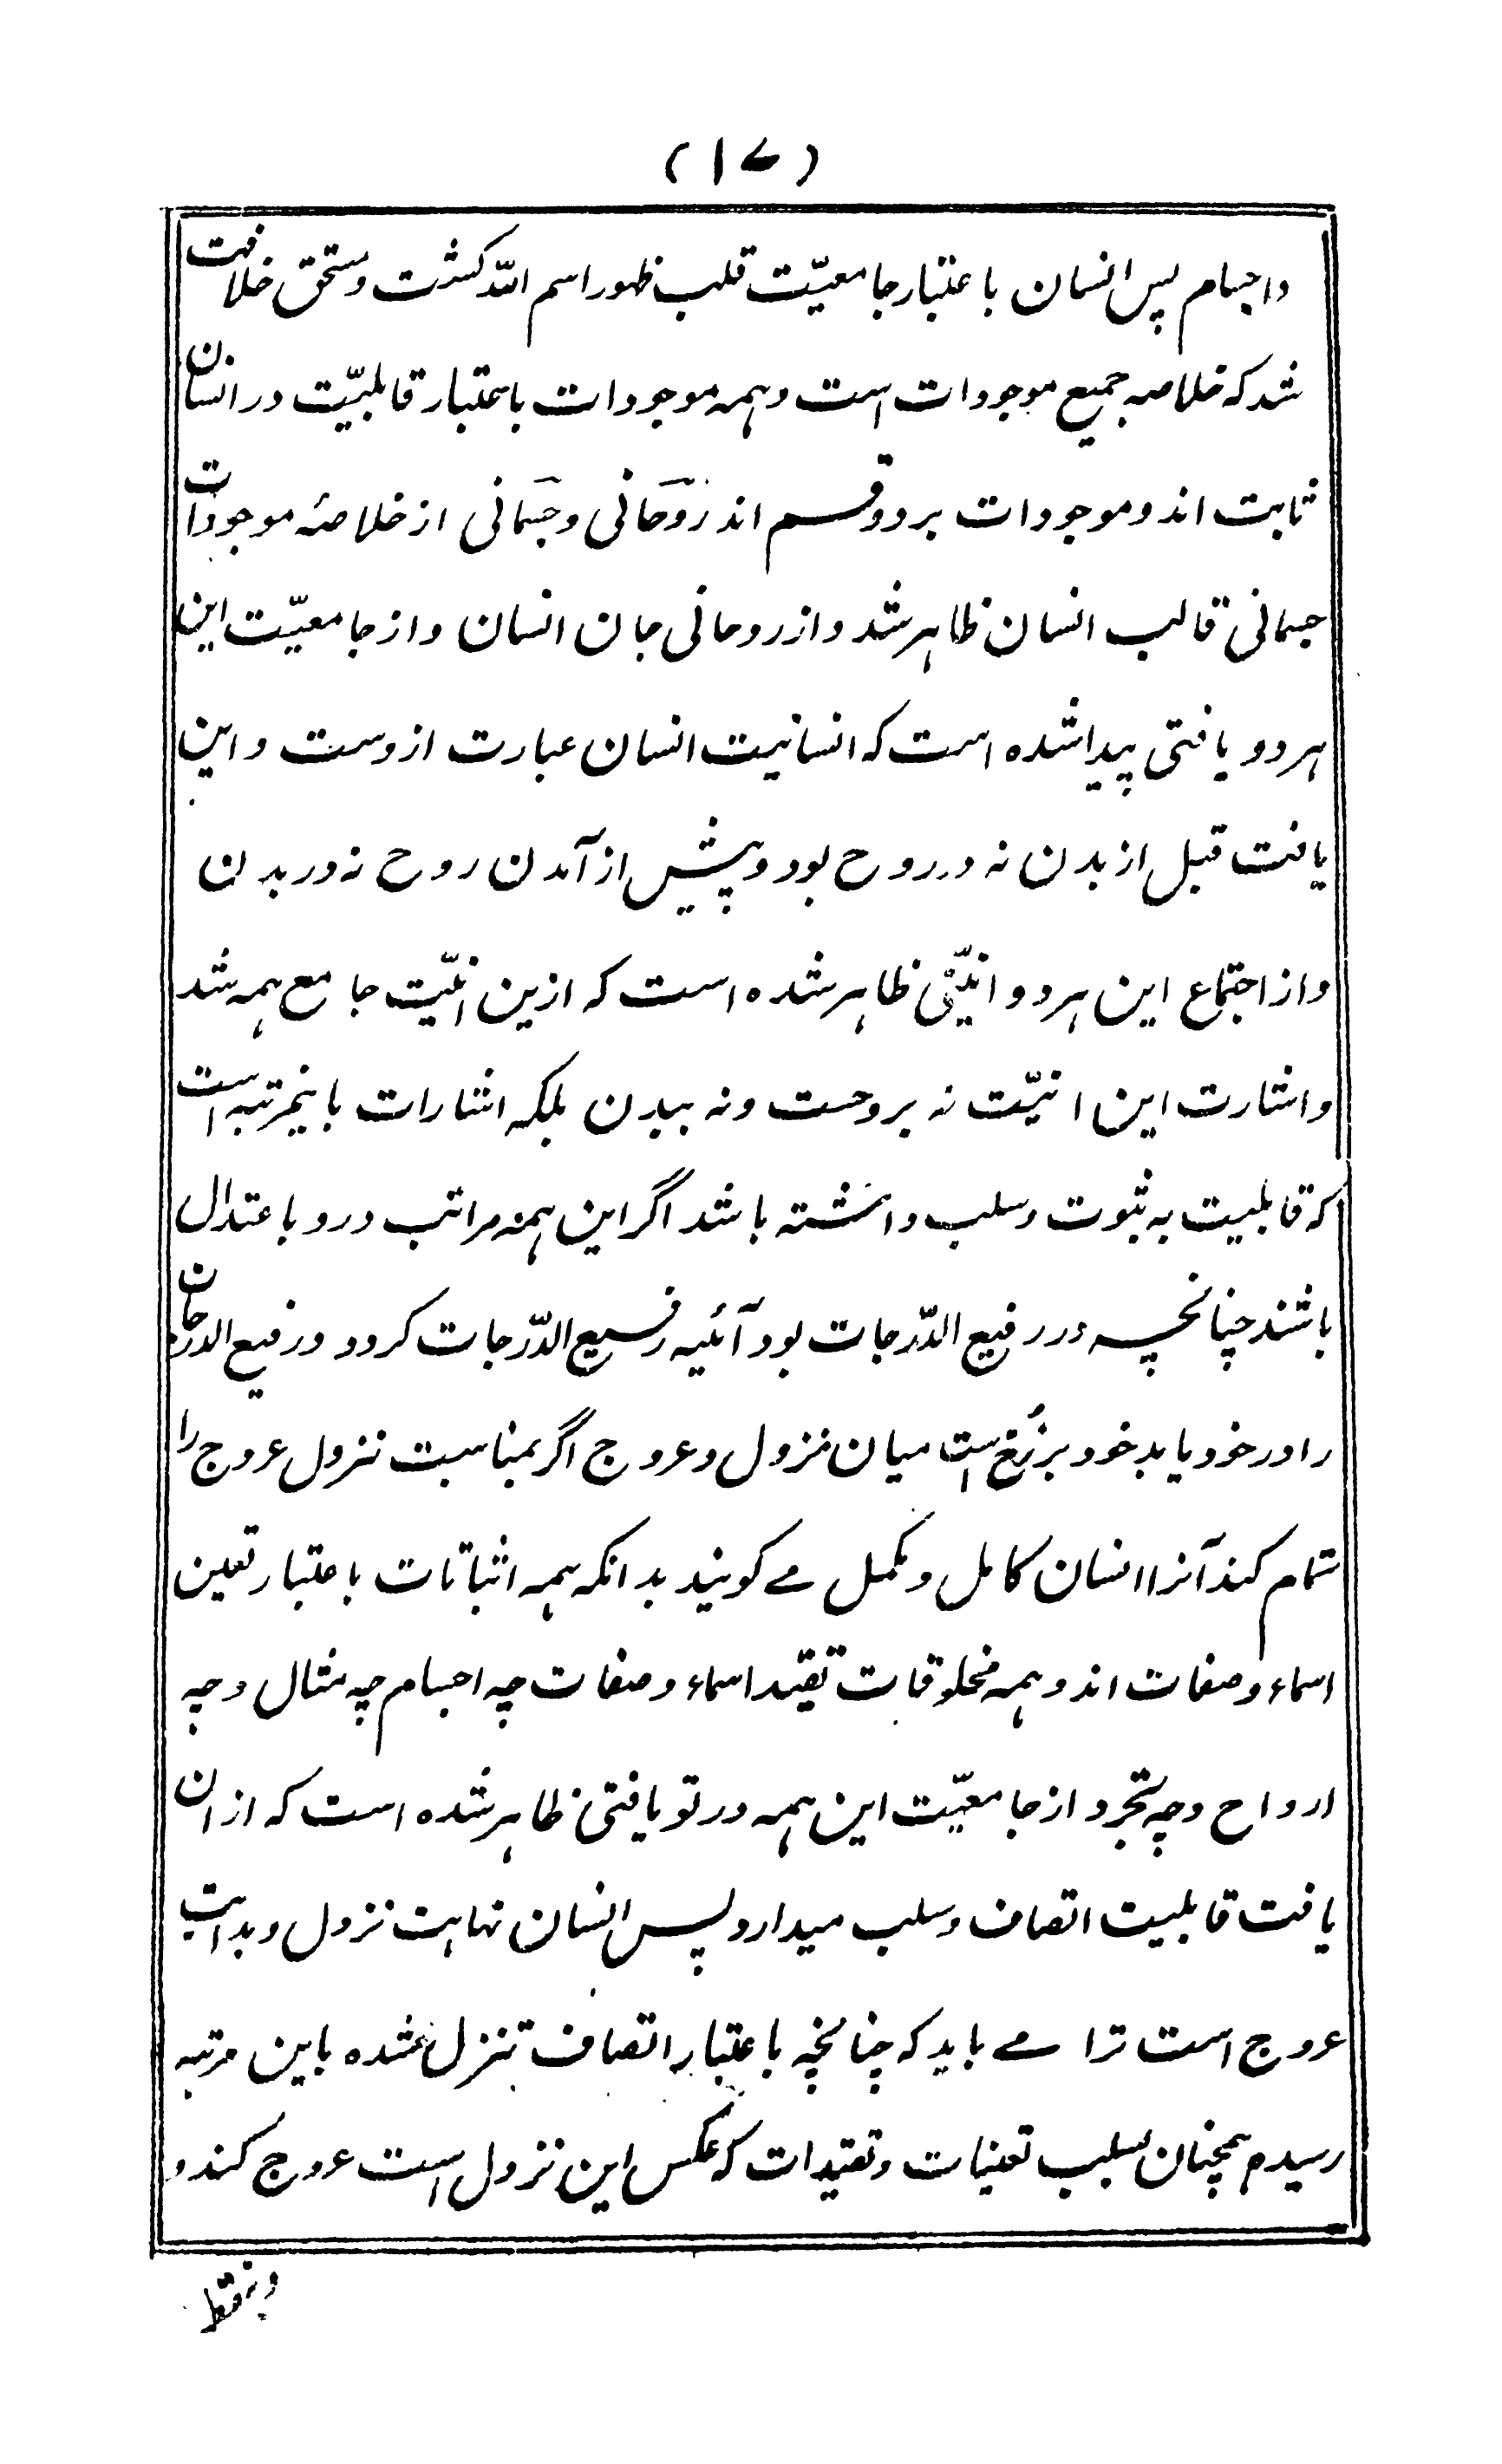 (۱۷)
واجسام پس انسان باعتبار جامعیّت قلب ظهور اسم اللّه گشت و مستحق خلافت
شد که خلاصه جمیع موجودات است و همه موجودات باعتبار قابلیّت در انسان
ثابت اند و موجودات بر دو قسم اند روحانی و جسمانی از خلاصهٔ موجودات
جسمانی قالب انسان ظاهر شد و از روحانی جان انسان و از جامعیّت این
هر دو یافتی پیدا شده است که انسانیت انسان عبارت ازوست و این
یافت قبل از بدن نه در روح بود و پیش از آمدن روح نه در بدن
و از اجتماع این هر دو انیّتی ظاهر شده است که ازین انیّت جامع همه شد
و اشارت این انیّت نه بروحست و نه ببدن بلکه اشارات باینمرتبه است
که قابلیت به ثبوت و سلب داشته باشد اگر این همه مراتب درو باعتدال
باشند چنانچه در رفیع الدّرجات بود آئینه رفیع الدّرجات گردد و رفیع الدرجات
را در خود یابد خود برزخ است میان نزول و عروج اگر بمناسبت نزول عروج را
تمام کند آنرا انسان کامل و مکمل مے گویند بدانکه همه اثباتات باعتبار تعین
اسماء و صفات اند و همه مخلوقات تقید اسماء و صفات چه اجسام چه مثال و چه
ارواح و چه تجرد از جامعیّت این همه در تو یافتی ظاهر شده است که از ان
یافت قابلیت اتصاف و سلب میدارد پس انسان نهایت نزول و بدایت
عروج است ترا مے باید که چنانچه باعتبار اتصاف تنزل شده باین مرتبه
رسیدهٔ همچنان بسلب تعینات و تقیدات که عکس این نزول است عروج کند و
و بنقطه